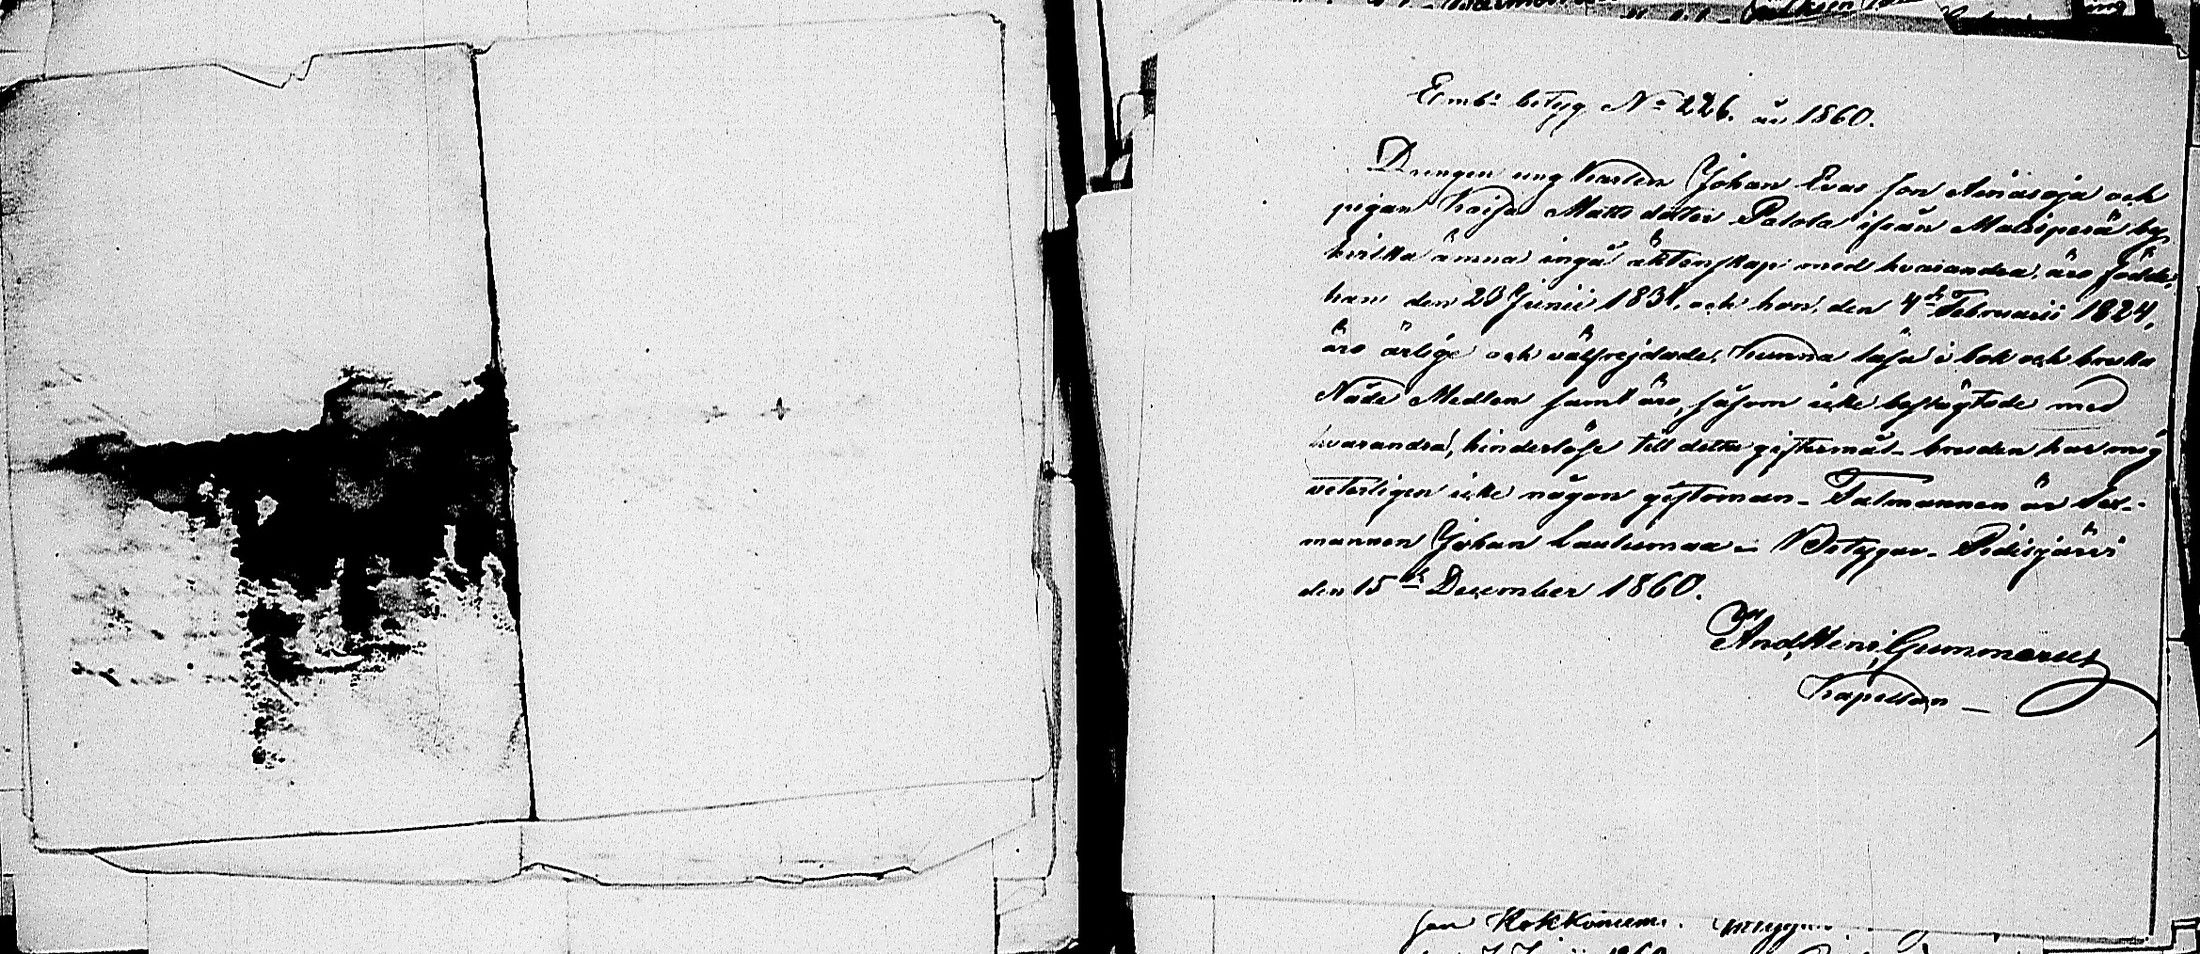 Embs betyg No 226. år 1860.
Drengen ungkarlen Johan Evas son Ainasoja och
pigan Kaisa Matts dotter Patola ifrån Malisperä by
hvilka ämna ingå äktenskap med hvarandra, äro födde,
han den 23 Junii 1831, och hon, den 4de Februarii 1824,
äro ärlige och välfrejdade, kunna läsa i bok och bruka
Nåde Medlen samt äro, såsom icke beslägtade med
hvarandra, hinderlöse till detta giftermål - bruden har mig
veterligen icke någon giftoman - Talmannen är Sex-
mannen Johan Lautumaa - Betygar - Pidisjärvi
den 15de December 1860.
And. Henr. Gummerus
Kapellan
Kokkoniemi.